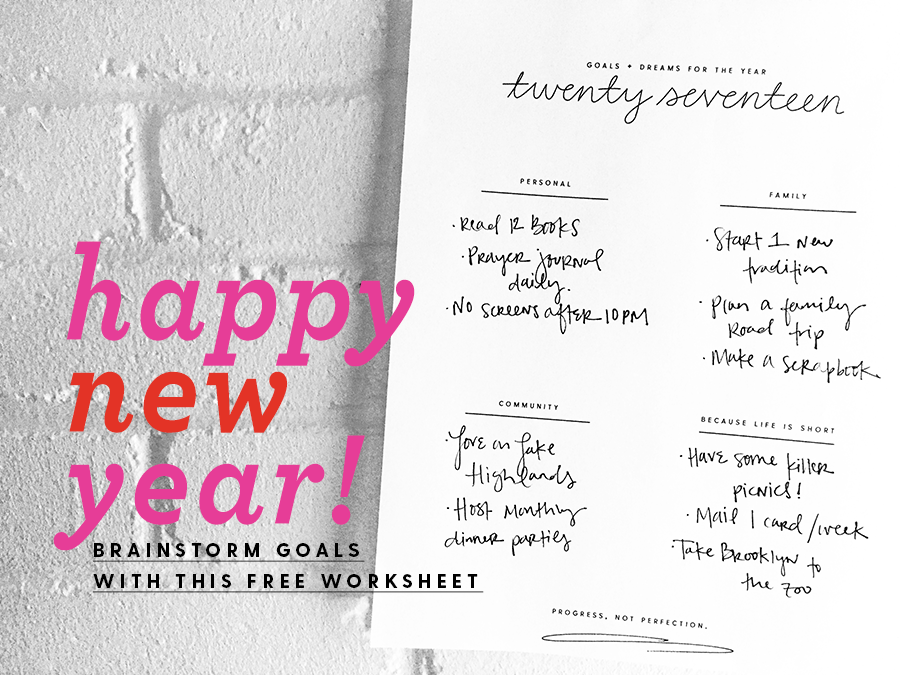 happy
new
year!
BRAINSTORM GOALS
WITH THIS FREE WORKSHEET
GOALS + DREAMS FOR THE YEAR
twenty seventeen
PERSONAL
· Read 12 Books
· Prayer journal
daily.
· No screens after 10 PM
FAMILY
· Start 1 new
tradition
· Plan a family
Road trip
· Make a scrapbook.
COMMUNITY
· Love on Lake
Highlands
· Host Monthly
dinner parties
BECAUSE LIFE IS SHORT
· Have some killer
picnics!
· Mail 1 card/week
· Take Brooklyn to
the zoo
PROGRESS, NOT PERFECTION.